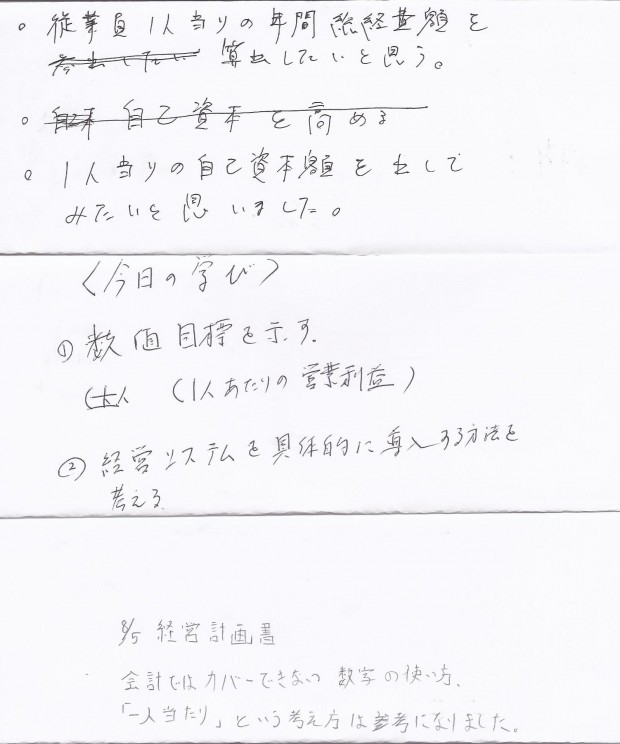 。従業員1人当りの年間総経費額を
算出したいと思う。
。自己資本を高める
。1人当りの自己資本額を出して
みたいと思いました。
〈今日の学び〉
① 数値目標を示す。
(1人あたりの営業利益)
② 経営システムを具体的に導入する方法を
考える
8/5 経営計画書
会計ではカバーできない数字の使い方、
「一人当たり」という考え方は参考になりました。